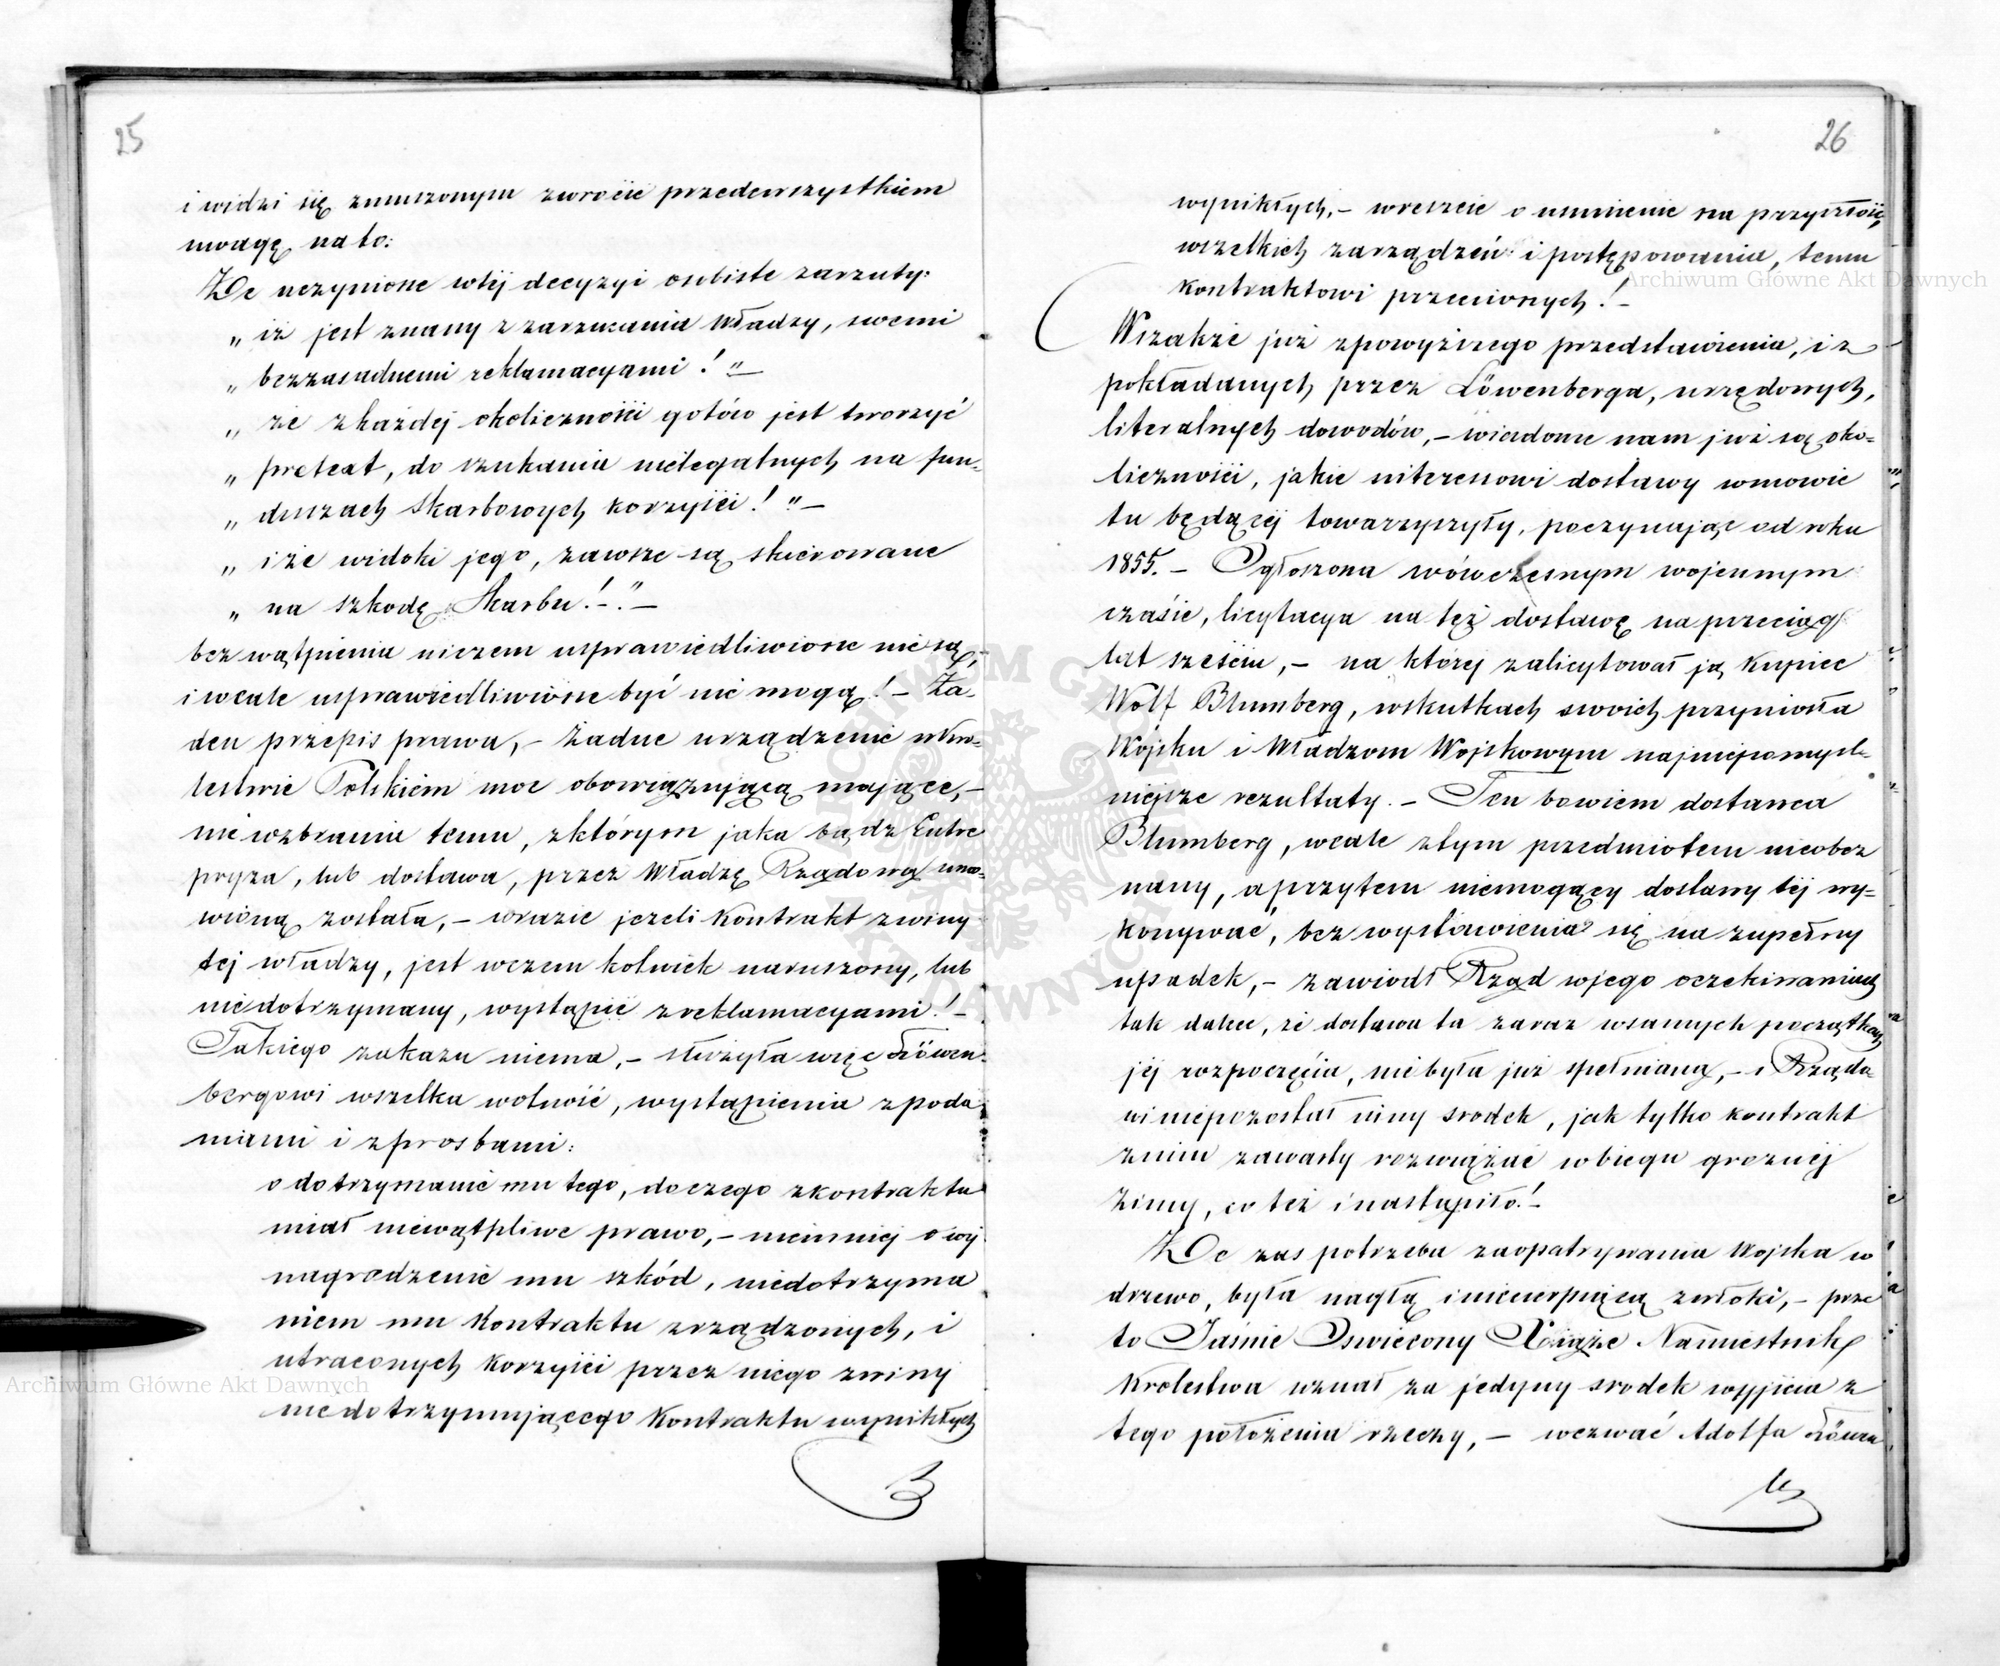 25
i widzi się zmuszonym zwrócić przedewszystkiem
uwagę na to:
Że uczynione w téj decyzyi osobiste zarzuty:
„ iż jest znany z zarzucania Władzy, swemi
„ bezzasadnemi reklamacyami! "—
„ że z każdej okoliczności gotów jest tworzyć
„ pretext, do szukania nielegalnych na fun-
„ duszach Skarbowych korzyści! "—
„ i że widoki jego, zawsze są skierowane
„ na szkodę Skarbu! –."—
bez wątpienia niczem usprawiedliwione nie są,–
i wcale usprawiedliwione być nie mogą! – Ża-
den przepis prawa, – żadne urządzenie w Kró-
lestwie Polskiém moc obowiązującą mające, –
nie wzbrania temu, z którym jaka bądz Entre
pryza, lub dostawa, przez Władzę Rządową umó-
wioną została, – w razie jeżeli Kontrakt z winy
tej władzy, jest w czem kolwiek naruszony, lub
niedotrzymany, wystąpić z reklamacyami! –
Takiego zakazu niema, – służyła więc Löwen-
bergowi wszelka wolność, wystąpienia z poda
niami i z prosbami:
o dotrzymanie mu tego, do czego z kontraktu
miał niewątpliwe prawo, – niemniej o wy
nagrodzenie mu szkód, niedotrzyma
niem mu Kontraktu zrządzonych, i
utraconych korzyści przez niego z winy
niedotrzymującego Kontraktu wynikłych
26
wynikłych, – wreszcie o usunienie na przyszłość,
wszelkich zarządzeń i postępowania, temu
kontraktowi przeciwnych! –
Wszakże już z powyższego przedstawienia, i z
pokładanych przez Löwenberga, urzędowych,
literalnych dowodów, – wiadome nam już są oko-
liczności, jakie interesowi dostawy w mowie
tu będącéj towarzyszyły, poczynając od roku
1855. – Ogłoszona w ówczesnym wojennym
czasie, licytacya na tęż dostawę na przeciąg
lat sześciu, – na której zalicytował ją Kupiec
Wolf Blumberg, w skutkach swoich przyniosła
Wojsku i Władzom Wojskowym najniepomyśl-
niejsze rezultaty. – Ten bowiem dostawca
Blumberg, wcale z tym przedmiotem nieobez
nany, a przytem niemogący dostawy téj wy-
konywać, bez wystawienia się na zupełny
upadek, – zawiodł Rząd w jego oczekiwaniach
tak dalece, że dostawa ta zaraz w samych początkach
jéj rozpoczęcia, nie była już spełnianą, – i Rządo-
wi niepozostał inny srodek, jak tylko kontrakt
z nim zawarty rozwiązać w biegu groznéj
zimy, co też i nastąpiło! –
Że zas potrzeba zaopatrywania Wojska w
drzewo, była nagłą i niecierpiącą zwłoki, – prze
to Jaśnie Oswiecony Xiąże Namiestnik
Krolestwa uznał za jedyny srodek wyjścia z
tego położenia rzeczy, – wezwać Adolfa Löwen
Archiwum Główne Akt Dawnych
Archiwum Główne Akt Dawnych
ARCHIWUM GŁÓWNE AKT DAWNYCH